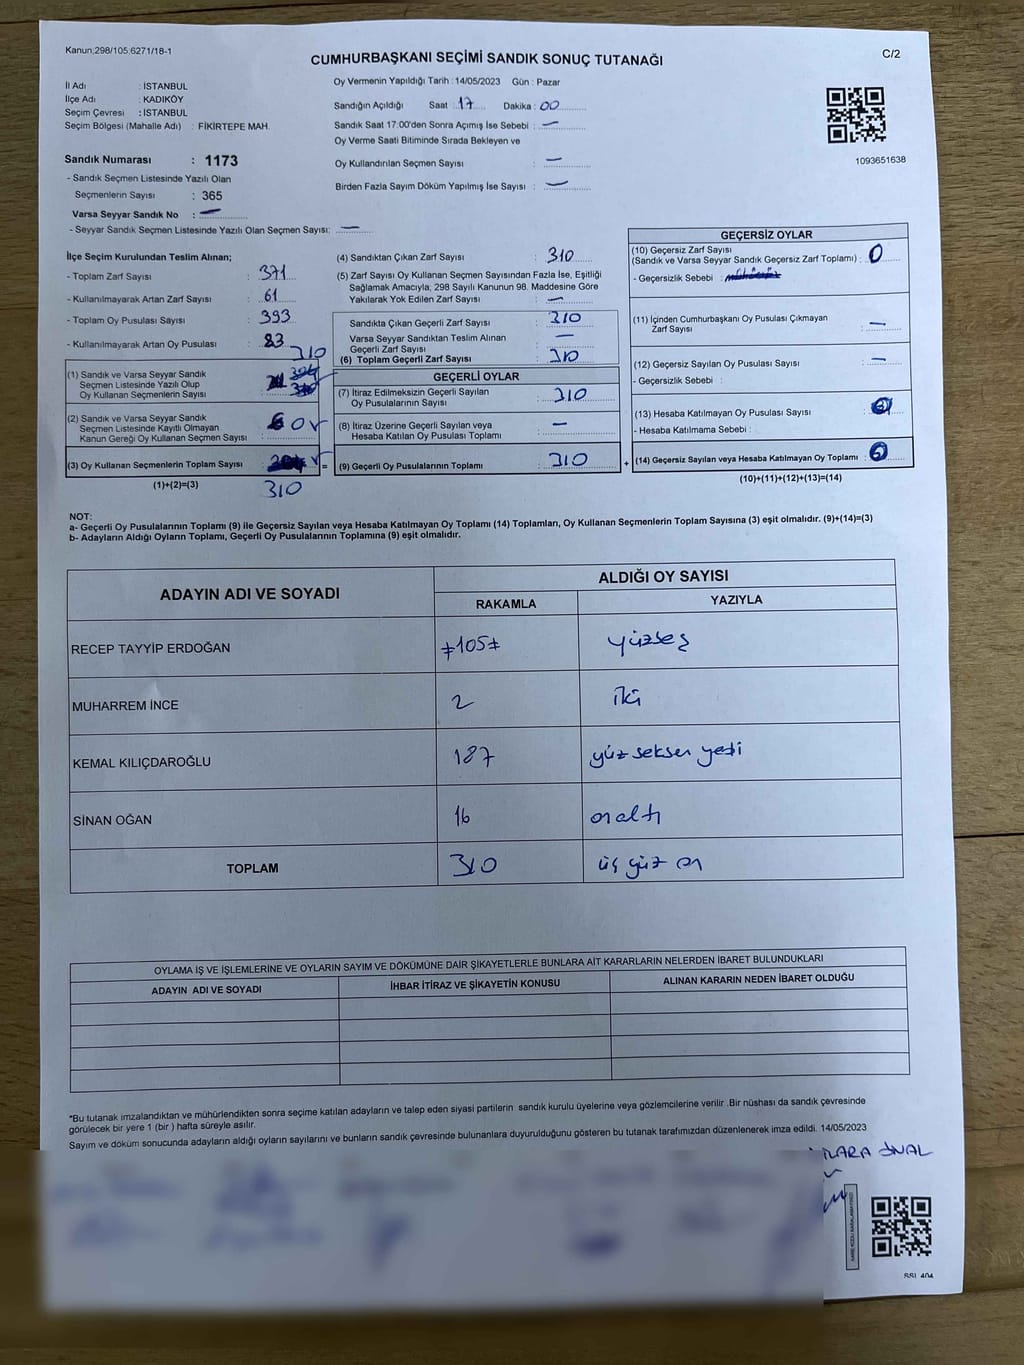 Kanun:298/105.6271/18-1
C/2
CUMHURBAŞKANI SEÇİMİ SANDIK SONUÇ TUTANAĞI
İl Adı : İSTANBUL
İlçe Adı : KADIKÖY
Seçim Çevresi : İSTANBUL
Seçim Bölgesi (Mahalle Adı) : FİKİRTEPE MAH.
Sandık Numarası : 1173
- Sandık Seçmen Listesinde Yazılı Olan
Seçmenlerin Sayısı : 365
Varsa Seyyar Sandık No : —
- Seyyar Sandık Seçmen Listesinde Yazılı Olan Seçmen Sayısı: —
Oy Vermenin Yapıldığı Tarih : 14/05/2023 Gün : Pazar
Sandığın Açıldığı Saat : 17 Dakika : 00
Sandık Saat 17:00'den Sonra Açımış İse Sebebi : —
Oy Verme Saati Bitiminde Sırada Bekleyen ve
Oy Kullandırılan Seçmen Sayısı : —
Birden Fazla Sayım Döküm Yapılmış İse Sayısı : —
1093651638
İlçe Seçim Kurulundan Teslim Alınan;
- Toplam Zarf Sayısı : 371
- Kullanılmayarak Artan Zarf Sayısı : 61
- Toplam Oy Pusulası Sayısı : 393
- Kullanılmayarak Artan Oy Pusulası : 83
310
(1) Sandık ve Varsa Seyyar Sandık
Seçmen Listesinde Yazılı Olup
Oy Kullanan Seçmenlerin Sayısı :
(2) Sandık ve Varsa Seyyar Sandık
Seçmen Listesinde Kayıtlı Olmayan
Kanun Gereği Oy Kullanan Seçmen Sayısı : 0
(3) Oy Kullanan Seçmenlerin Toplam Sayısı :
(1)+(2)=(3) 310
(4) Sandıktan Çıkan Zarf Sayısı : 310
(5) Zarf Sayısı Oy Kullanan Seçmen Sayısından Fazla İse, Eşitliği
Sağlamak Amacıyla; 298 Sayılı Kanunun 98. Maddesine Göre
Yakılarak Yok Edilen Zarf Sayısı : —
Sandıkta Çıkan Geçerli Zarf Sayısı : 310
Varsa Seyyar Sandıktan Teslim Alınan
Geçerli Zarf Sayısı : —
(6) Toplam Geçerli Zarf Sayısı : 310
GEÇERLİ OYLAR
(7) İtiraz Edilmeksizin Geçerli Sayılan
Oy Pusulalarının Sayısı : 310
(8) İtiraz Üzerine Geçerli Sayılan veya
Hesaba Katılan Oy Pusulası Toplamı : —
= (9) Geçerli Oy Pusulalarının Toplamı : 310
GEÇERSİZ OYLAR
(10) Geçersiz Zarf Sayısı
(Sandık ve Varsa Seyyar Sandık Geçersiz Zarf Toplamı) : 0
- Geçersizlik Sebebi :
(11) İçinden Cumhurbaşkanı Oy Pusulası Çıkmayan
Zarf Sayısı : —
(12) Geçersiz Sayılan Oy Pusulası Sayısı : —
- Geçersizlik Sebebi :
(13) Hesaba Katılmayan Oy Pusulası Sayısı :
- Hesaba Katılmama Sebebi :
+ (14) Geçersiz Sayılan veya Hesaba Katılmayan Oy Toplamı :
(10)+(11)+(12)+(13)=(14)
NOT:
a- Geçerli Oy Pusulalarının Toplamı (9) ile Geçersiz Sayılan veya Hesaba Katılmayan Oy Toplamı (14) Toplamları, Oy Kullanan Seçmenlerin Toplam Sayısına (3) eşit olmalıdır. (9)+(14)=(3)
b- Adayların Aldığı Oyların Toplamı, Geçerli Oy Pusulalarının Toplamına (9) eşit olmalıdır.
ADAYIN ADI VE SOYADI
ALDIĞI OY SAYISI
RAKAMLA YAZIYLA
RECEP TAYYİP ERDOĞAN ≠105≠ yüzbeş
MUHARREM İNCE 2 iki
KEMAL KILIÇDAROĞLU 187 yüz seksen yedi
SİNAN OĞAN 16 onaltı
TOPLAM 310 üç yüz on
OYLAMA İŞ VE İŞLEMLERİNE VE OYLARIN SAYIM VE DÖKÜMÜNE DAİR ŞİKAYETLERLE BUNLARA AİT KARARLARIN NELERDEN İBARET BULUNDUKLARI
ADAYIN ADI VE SOYADI İHBAR İTİRAZ VE ŞİKAYETİN KONUSU ALINAN KARARIN NEDEN İBARET OLDUĞU
*Bu tutanak imzalandıktan ve mühürlendikten sonra seçime katılan adayların ve talep eden siyasi partilerin sandık kurulu üyelerine veya gözlemcilerine verilir .Bir nüshası da sandık çevresinde
görülecek bir yere 1 (bir ) hafta süreyle asılır.
Sayım ve döküm sonucunda adayların aldığı oyların sayılarını ve bunların sandık çevresinde bulunanlara duyurulduğunu gösteren bu tutanak tarafımızdan düzenlenerek imza edildi. 14/05/2023